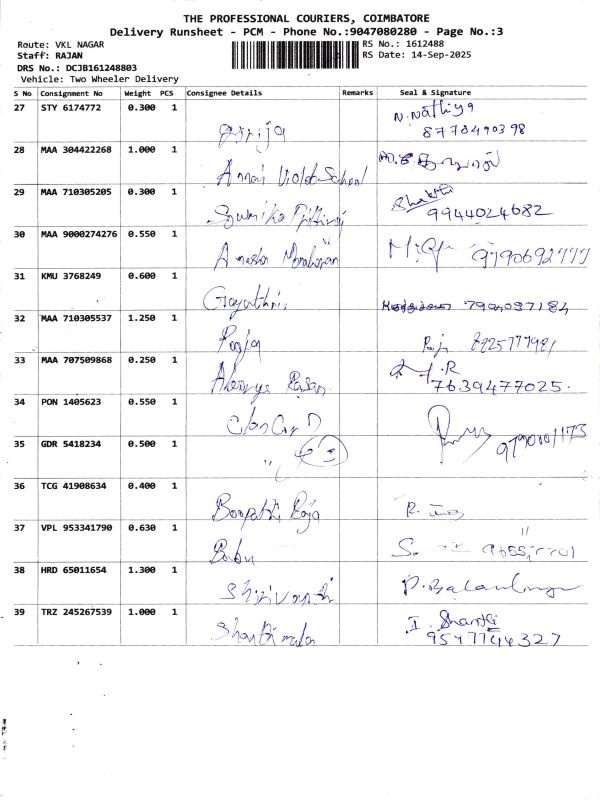 THE PROFESSIONAL COURIERS, COIMBATORE
Delivery Runsheet - PCM - Phone No.:9047080280 - Page No.:3
Route: VKL NAGAR RS No.: 1612488
Staff: RAJAN RS Date: 14-Sep-2025
DRS No.: DCJB161248803
Vehicle: Two Wheeler Delivery
S No Consignment No Weight PCS Consignee Details Remarks Seal & Signature
27 STY 6174772 0.300 1 N. Nathiya
Girija 8778490398
28 MAA 304422268 1.000 1
Annai Violet School
29 MAA 710305205 0.300 1 Shakthi
9944024682
30 MAA 9000274276 0.550 1
Manoharan 9790692777
31 KMU 3768249 0.600 1
Gayathri
32 MAA 710305537 1.250 1
Pooja
33 MAA 707509868 0.250 1
7639477025.
34 PON 1405623 0.550 1
35 GDR 5418234 0.500 1
"
36 TCG 41908634 0.400 1
Boopathi Raja
37 VPL 953341790 0.630 1
Babu
38 HRD 65011654 1.300 1
39 TRZ 245267539 1.000 1 I. Shanthi
9547744327